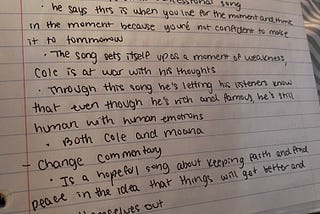 confessional song
• he says this is when you live for the moment and think
in the moment because you're not confident to make
it to tommorow
• The song sets itself up as a moment of weakness,
Cole is at war with his thoughts
• Through this song he's letting his listeners know
that even though he's rich and famous he's still
human with human emotions
• Both Cole and moana
- Change commentary
• Is a hopeful song about keeping faith and find
peace in the idea that things will get better and
ourselves out